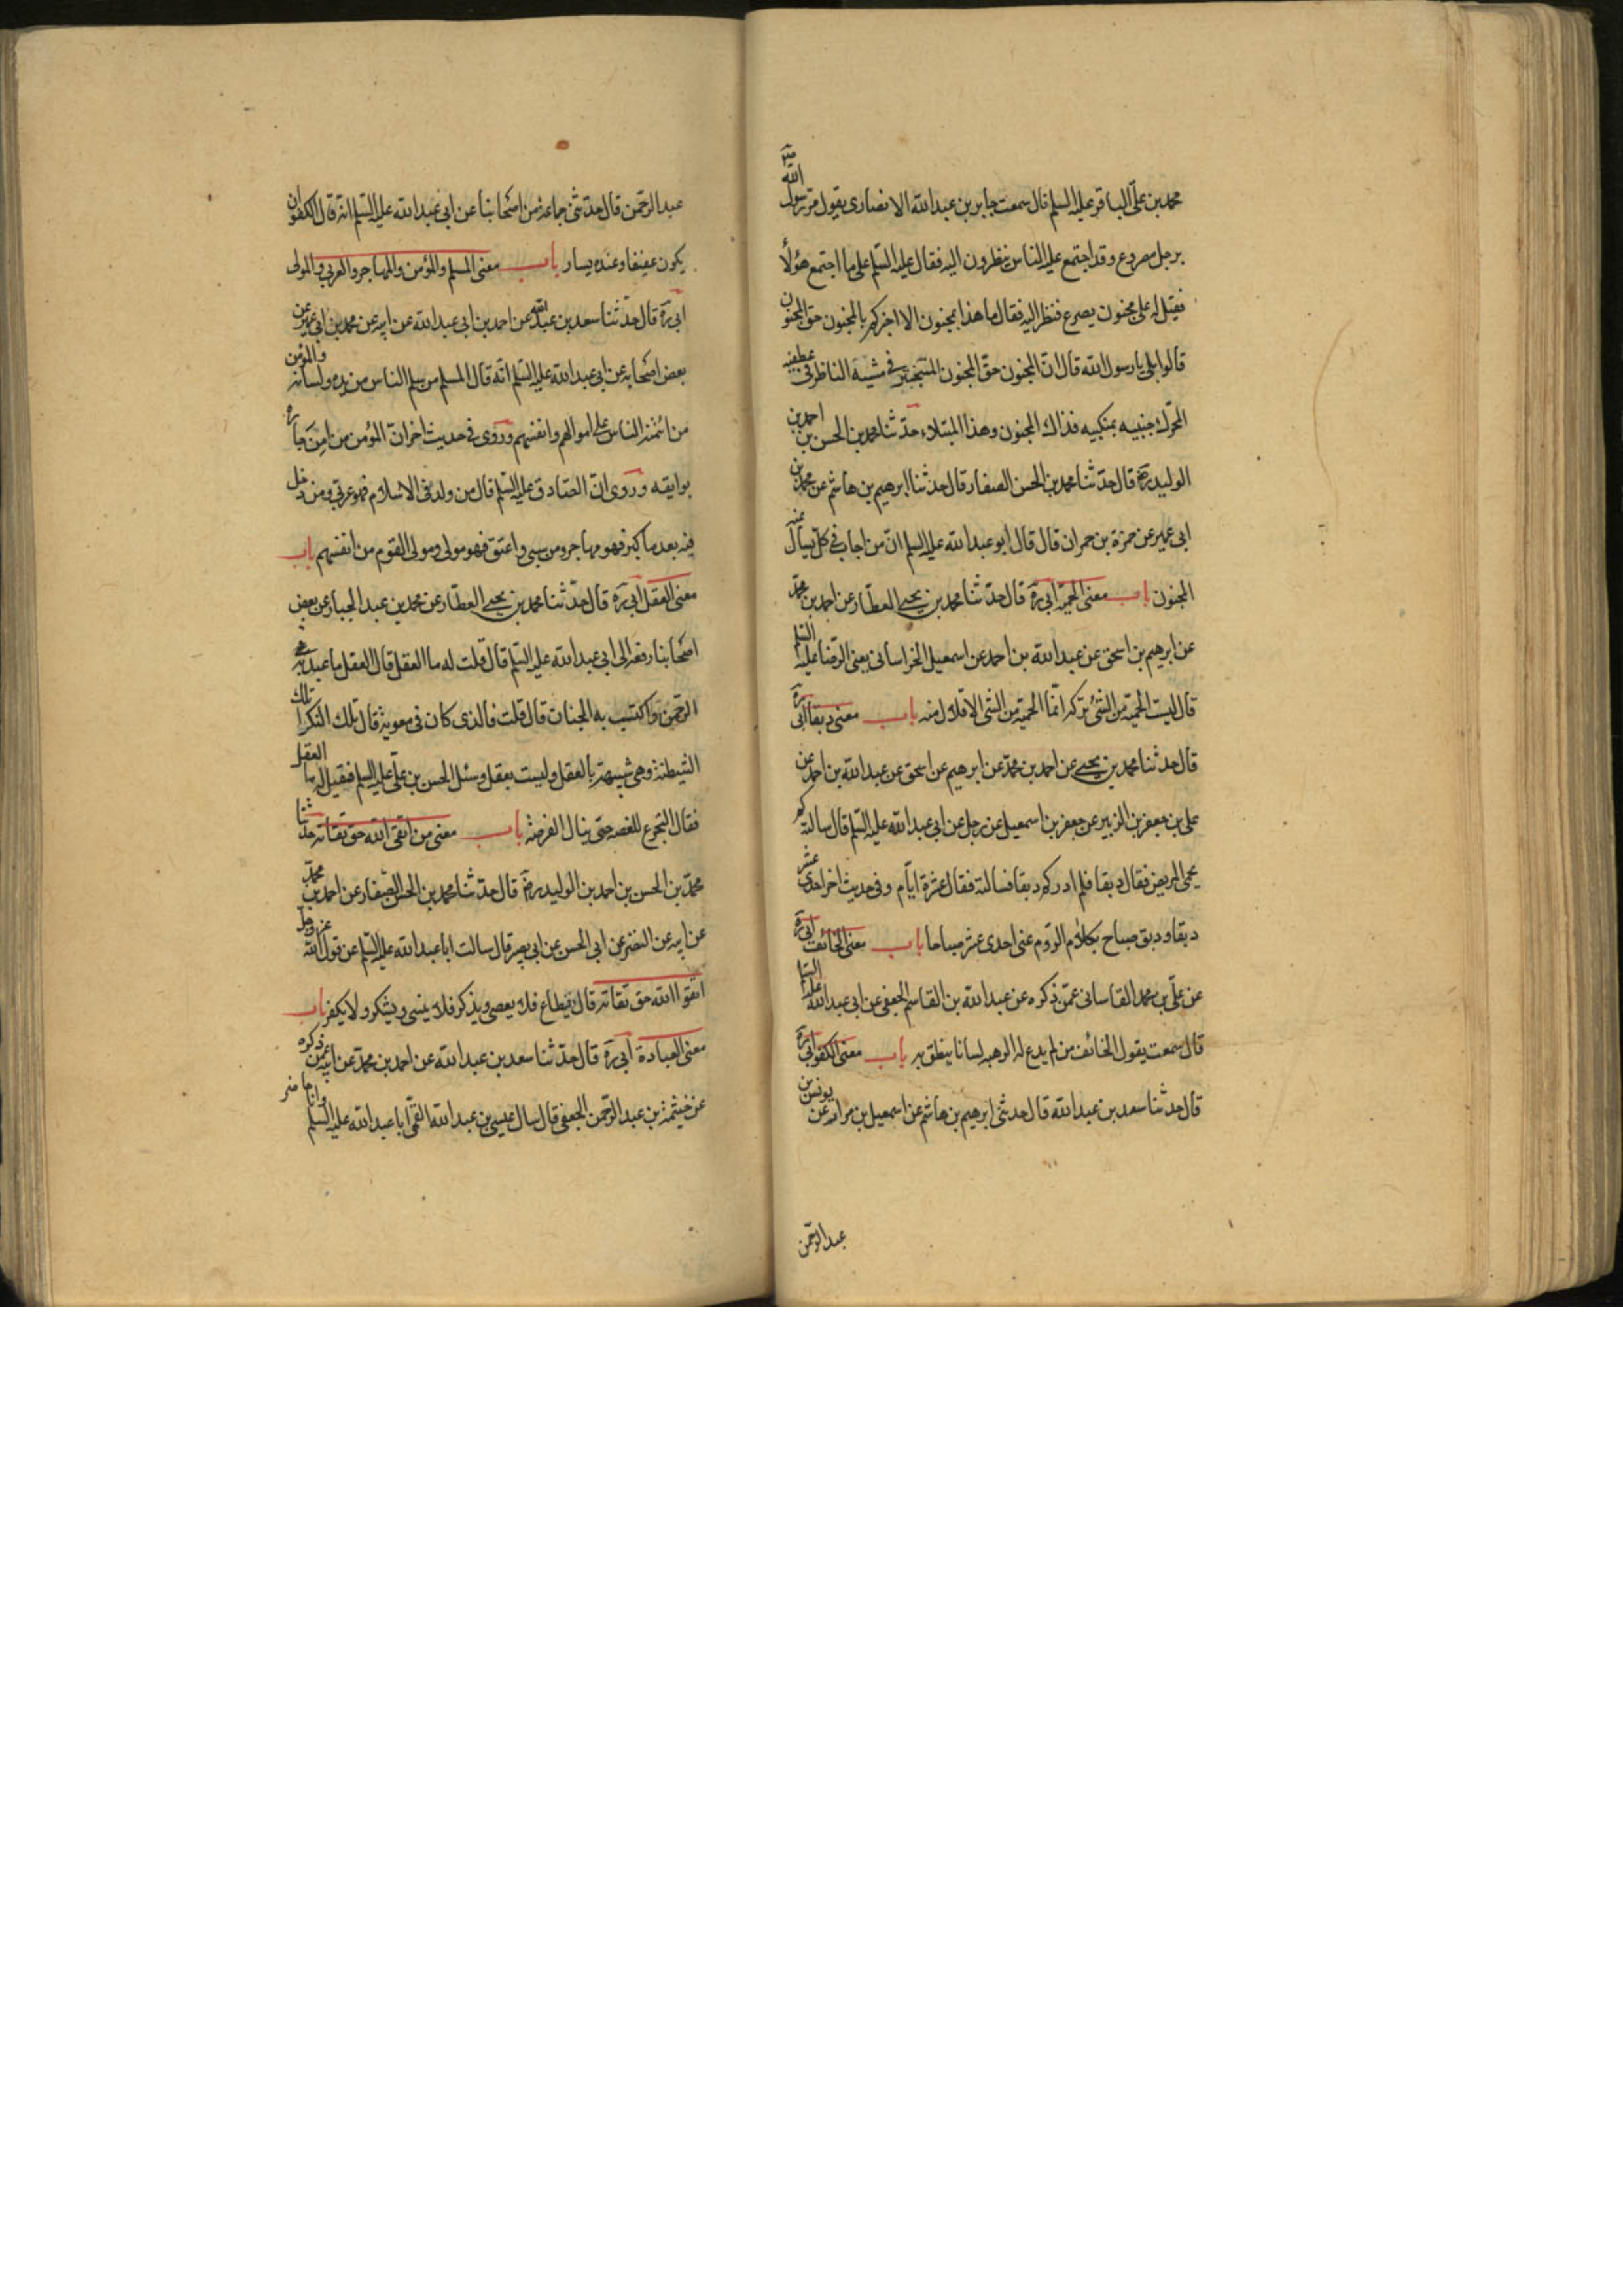 محمد بن علي الباقر عليه السلم قال سمعت جابر بن عبد الله الانصاري يقول مر رسول الله ص
برجل مصروع وقد اجتمع عليه الناس ينظرون اليه فقال عليه السلم على ما اجتمع هؤلأ
فقيل له على مجنون يصرع فنظر اليه فقال ما هذا بمجنون الا اخبركم بالمجنون حق المجنون
قالوا بلى يا رسول الله قال ان المجنون حق المجنون المتبختر في مشيه الناظر في عطفيه
المحرك جنبيه بمنكبيه فذاك المجنون وهذا المبتلاء حدثنا محمد بن الحسن بن احمد بن
الوليد ره قال حدثنا محمد بن الحسن الصفار قال حدثنا ابرهيم بن هاشم عن محمد بن
ابى عمير عن حمزة بن حمران قال قال ابو عبد الله عليه السلم ان من اجاب في كل ما يسأل عنه
المجنون باب معنى الحمية ابي ره قال حدثنا محمد بن يحيى العطار عن احمد بن محمد
عن ابرهيم بن اسحق عن عبد الله بن احمد عن اسمعيل الخراسانى يعنى الرضا عليه السلم
قال ليست الحمية من الشئ تركه انما الحمية من الشى الاقلال منه باب معنى دبقا ابى ره
قال حدثنا محمد بن يحيى عن احمد بن محمد عن ابرهيم عن اسحق عن عبد الله بن احمد عن
على بن جعفر بن الزبير عن جعفر بن اسمعيل عن رجل عن ابى عبد الله عليه السلم قال سالته كم
يحمى المريض فقال دبقا فلم ادر كم دبقا فسالته فقال عشرة ايام وفى حديث اخر احدى عشر
دبقا ودبق صباح بكلام الروم عنى احدى عشر صباحا باب معنى الخائف ابى ره
عن على بن محمد القاسانى عمن ذكره عن عبد الله بن القاسم الجعفى عن ابى عبد الله عليه السلم
قال سمعت يقول الخائف من لم يدع له الرهبه لسانا ينطق به باب معنى الكفو ابى ره
قال حدثنا سعد بن عبد الله قال حدثنى ابرهيم بن هاشم عن اسمعيل بن مرار عن يونس بن
عبد الرحمن
عبد الرحمن قال حدثنى جماعة من اصحابنا عن ابى عبد الله عليه السلم انه قال الكفو ان
يكون عفيفا وعنده يسار باب معنى المسلم والمؤمن والمهاجر والعربي والمولى
ابى ره قال حدثنا سعد بن عبد الله عن احمد بن ابى عبد الله عن ابيه عن محمد بن ابى عمير عن
بعض اصحابه عن ابى عبد الله عليه السلم انه قال المسلم من سلم الناس من يده ولسانه والمؤمن
من ائتمنه الناس على اموالهم وانفسهم وروى في حديث اخر ان المؤمن من امن جاره
بوايقه وروى ان الصادق عليه السلم قال من ولد في الاسلام فهو عربي ومن دخل
فيه بعد ما كبر فهو مهاجر ومن سبى واعتق فهو مولى ومولى القوم من انفسهم باب
معنى العقل ابى ره قال حدثنا محمد بن يحيى العطار عن محمد بن عبد الجبار عن بعض
اصحابنا رفعه الى ابى عبد الله عليه السلم قال قلت له ما العقل قال العقل ما عبد به
الرحمن واكتسب به الجنان قال قلت فالذى كان في معوية قال تلك النكرا تلك
الشيطنة وهى شبيهة بالعقل وليست بعقل وسئل الحسن بن على عليه السلم فقيل له ما العقل
فقال التجرع للغصه حتى ينال الفرصة باب معنى من اتقى الله حق تقاته حدثنا
محمد بن الحسن بن احمد بن الوليد ره قال حدثنا محمد بن الحسن الصفار عن احمد بن محمد
عن ابيه عن النضر عن ابى الحسن عن ابى بصير قال سالت ابا عبد الله عليه السلم عن قول الله عز وجل
اتقوا الله حق تقاته قال يطاع فلا يعصى ويذكر فلا ينسى ويشكر ولا يكفر باب
معنى العبادة ابى ره قال حدثنا سعد بن عبد الله عن احمد بن محمد عن ابيه عمن ذكره
عن خيثمة بن عبد الرحمن الجعفى قال سال عيسى بن عبد الله القمى ابا عبد الله عليه السلم وانا حاضر